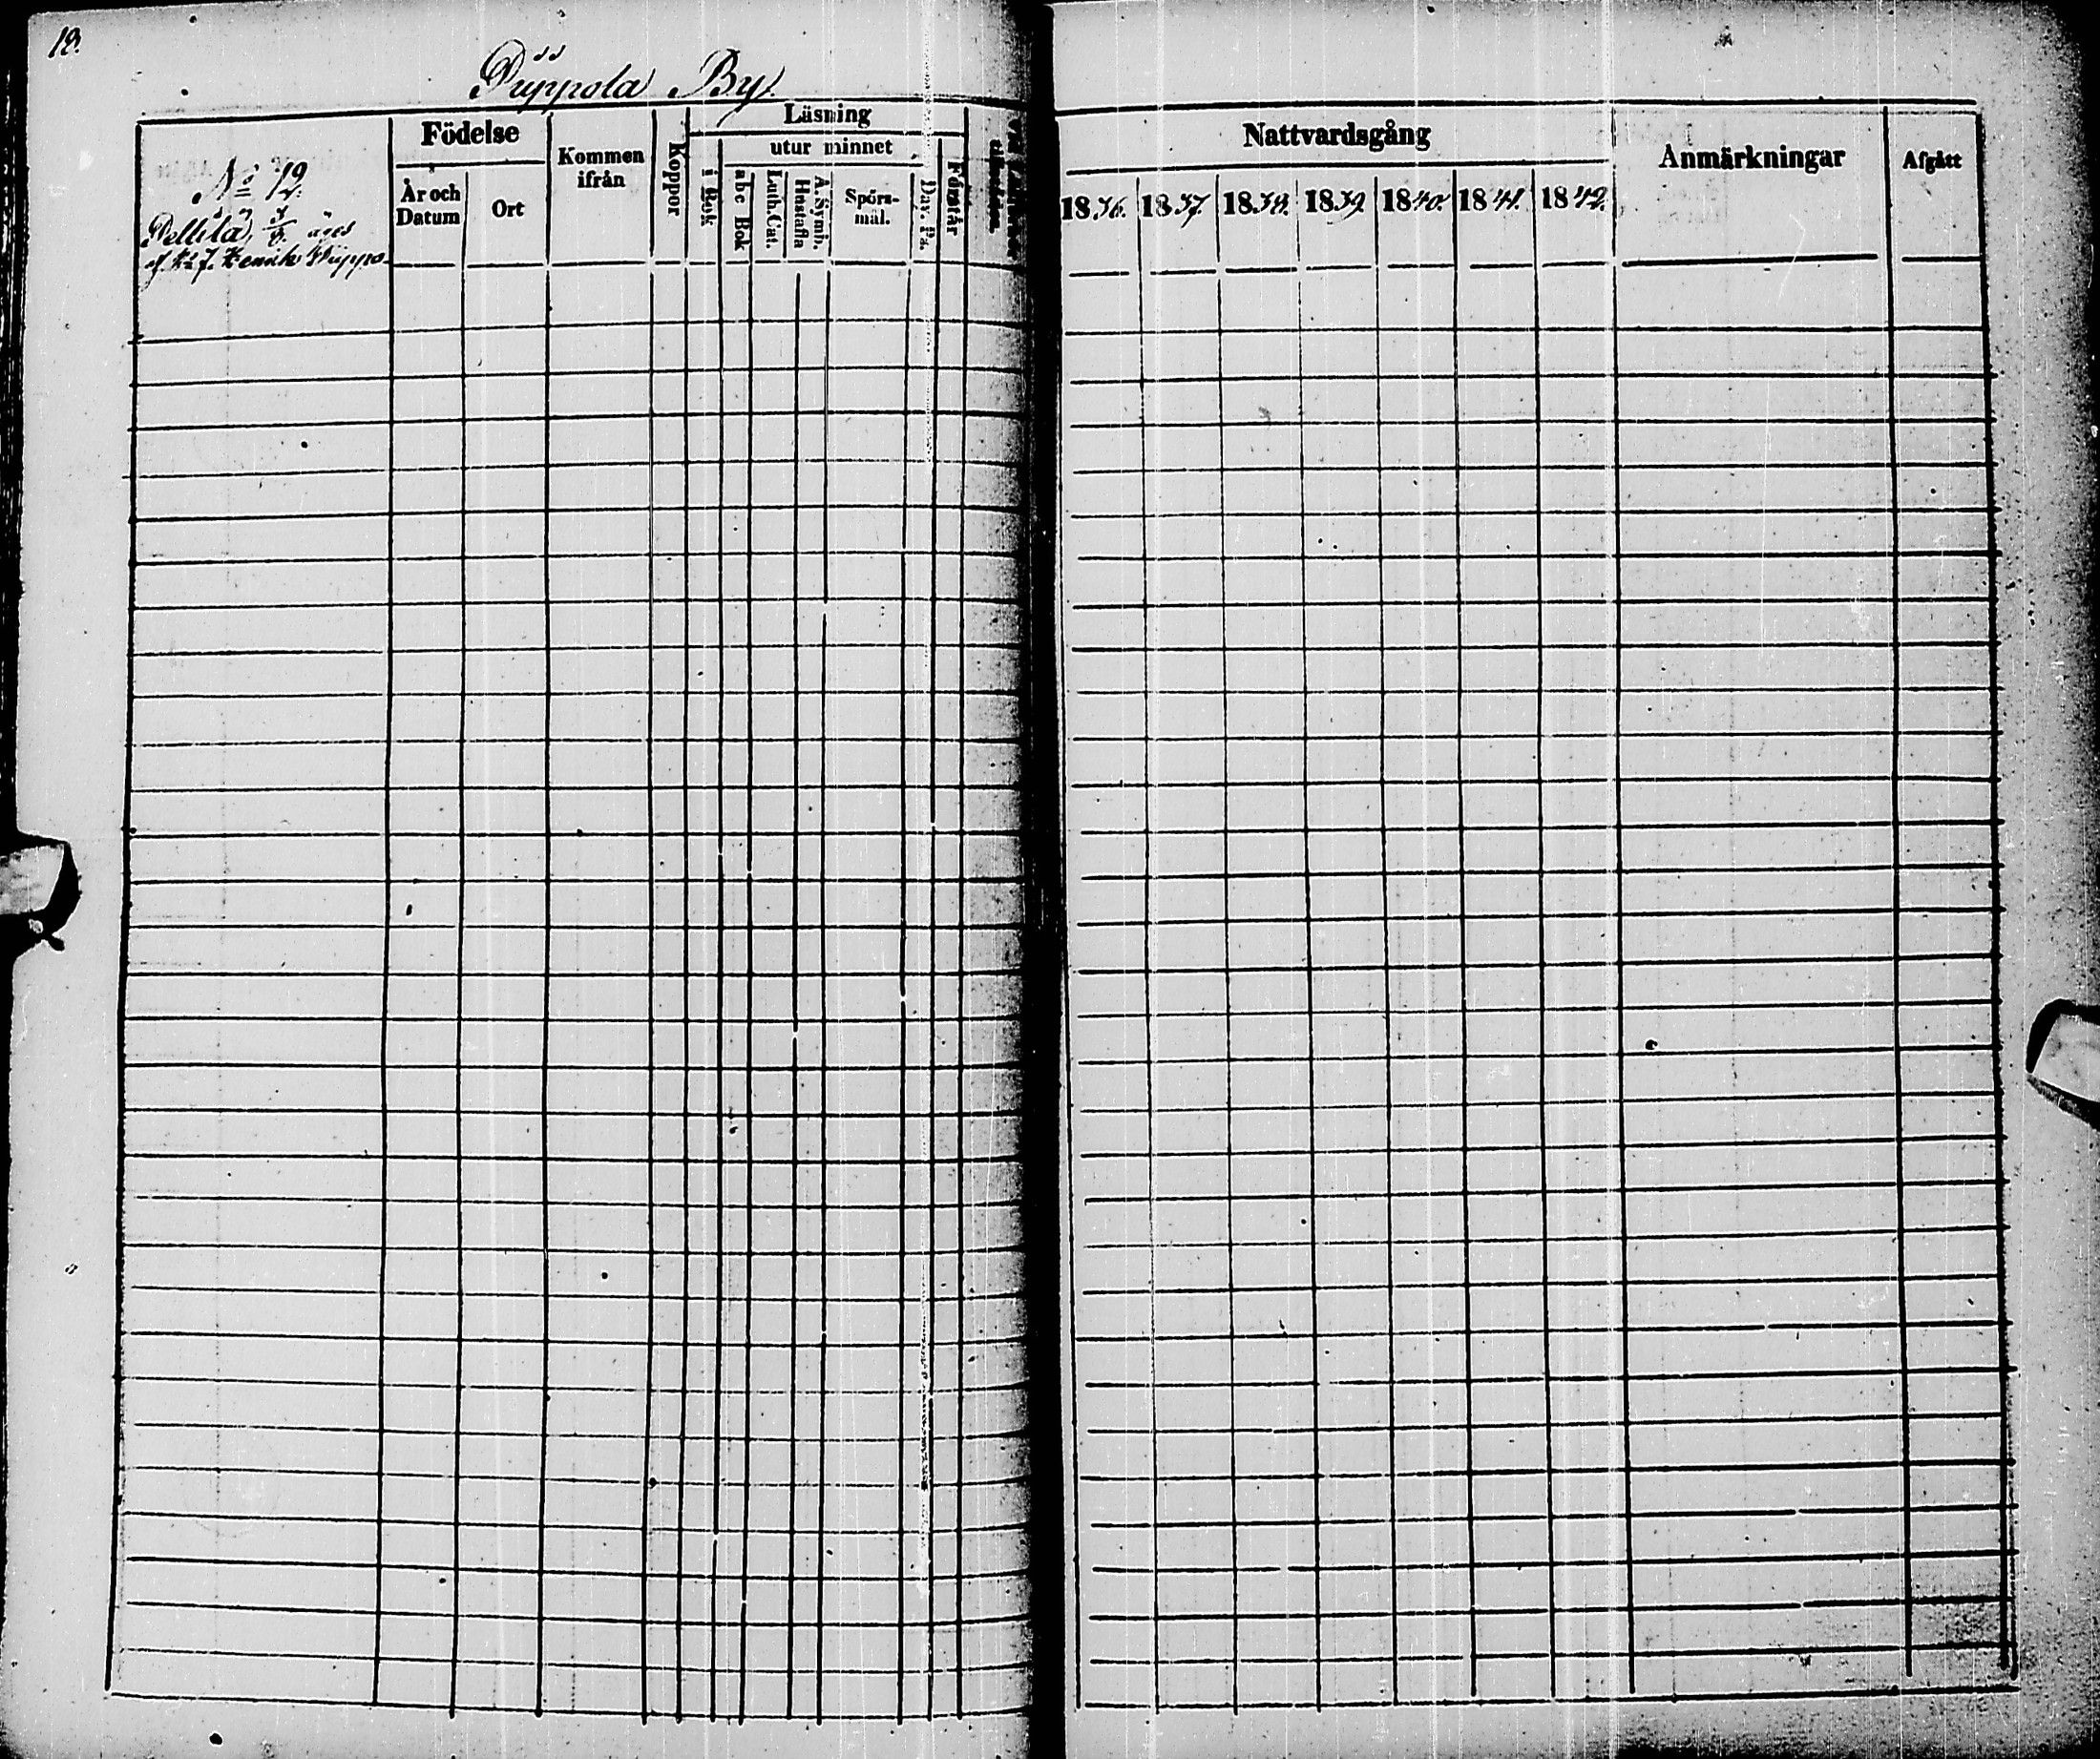 18.
Püppola By.
Födelse
Läsning
Nattvardsgång
Anmärkningar
Afgått
utur minnet
Kommen
ifrån
Koppor
i Bok
abc Bok
Luth. Cat.
A. Symb.
Hustafla
Spörs-
mål.
Dav. Ps.
Förstår
År och
Datum
Ort
1836. 1837. 1838. 1839 1840. 1841. 1842.
No 12.
äges
af No 7. Henrik